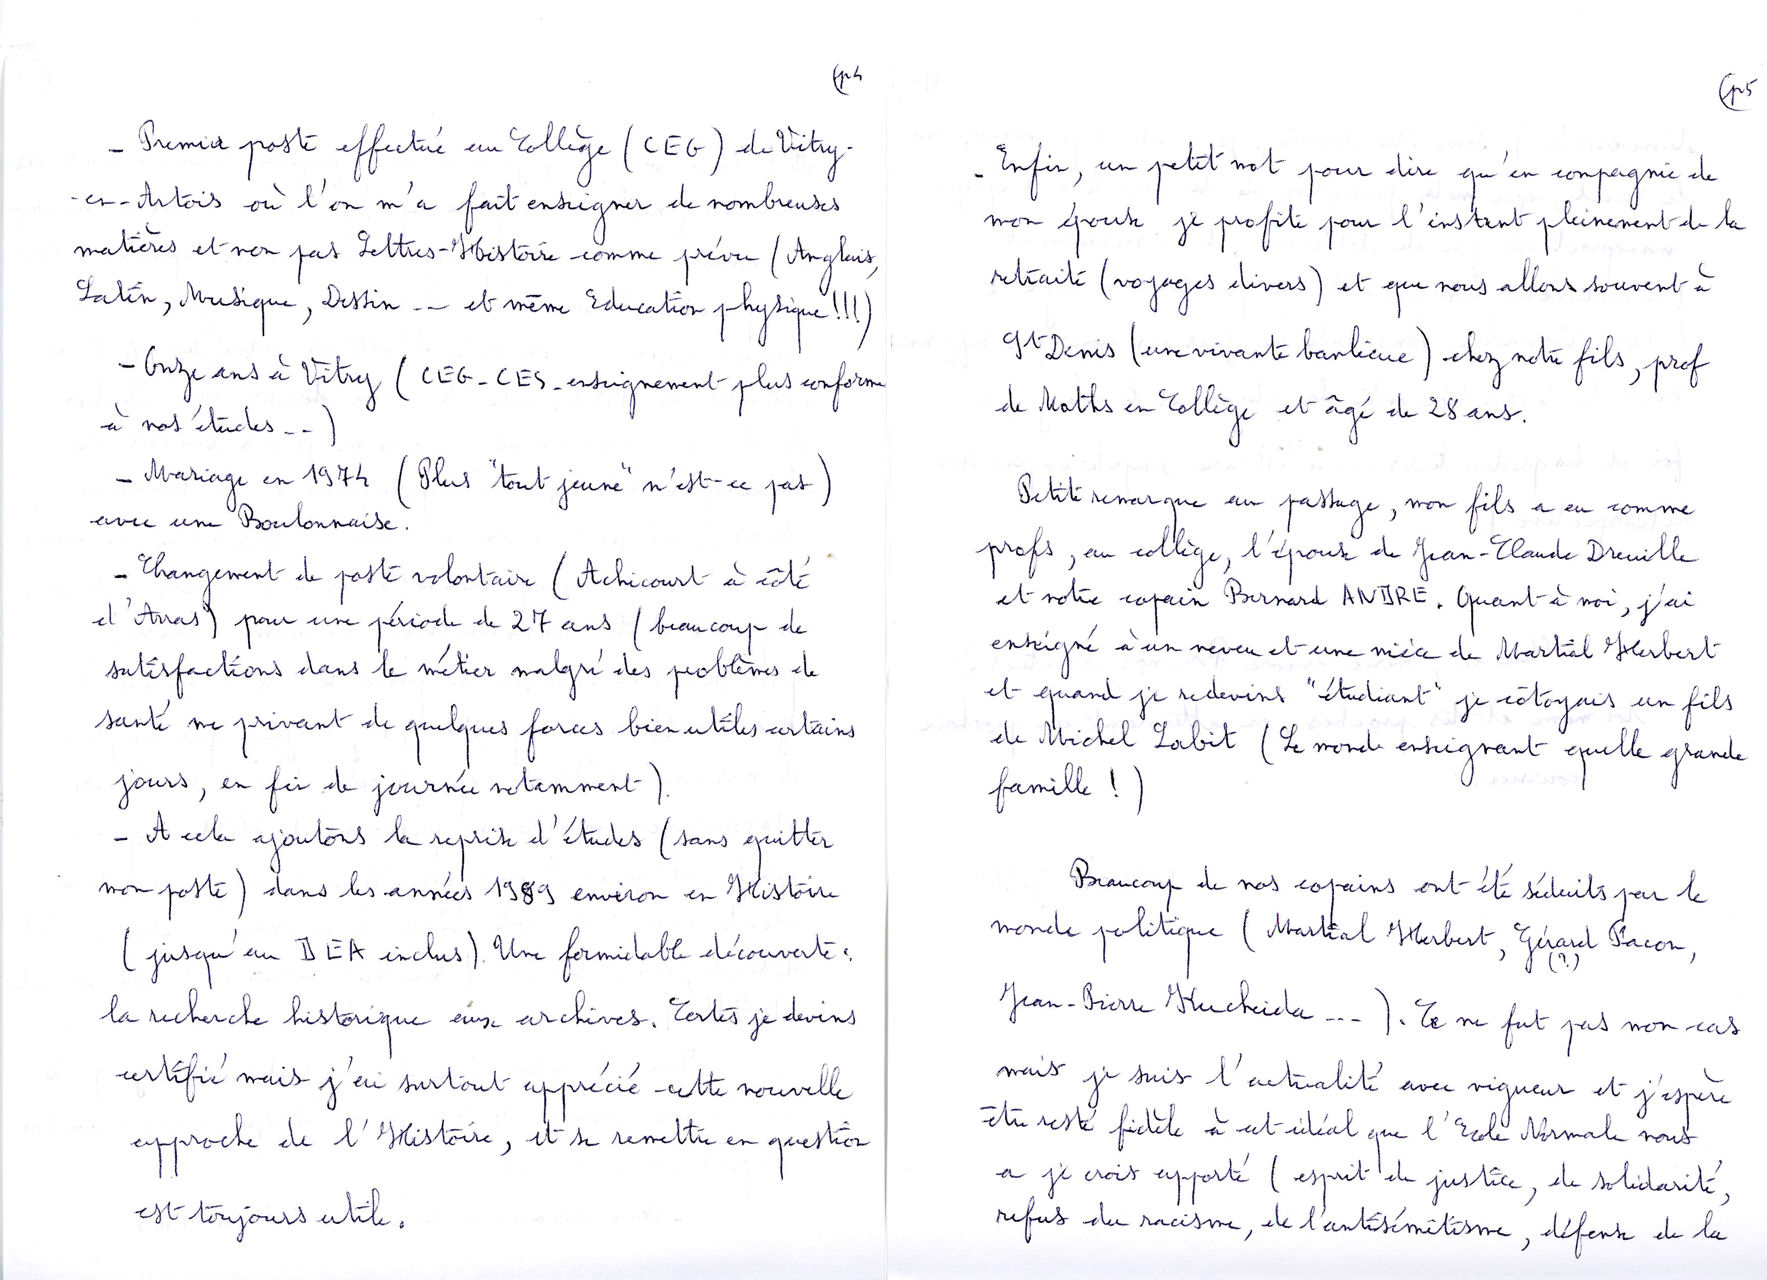 (p4
- Premier poste effectué au Collège (CEG) de Vitry-
-en-Artois où l'on m'a fait enseigner de nombreuses
matières et non pas Lettres-Histoire comme prévu (Anglais,
Latin, Musique, Dessin -- et même Education physique!!!)
- Onze ans à Vitry (CEG-CES-enseignement plus conforme
à nos études --)
- Mariage en 1974 (Plus "tout jeune" n'est-ce pas)
avec une Boulonnaise.
- Changement de poste volontaire (Achicourt à côté
d'Arras) pour une période de 27 ans (beaucoup de
satisfactions dans le métier malgré des problèmes de
santé me privant de quelques forces bien utiles certains
jours, en fin de journée notamment).
- A cela ajoutons la reprise d'études (sans quitter
mon poste) dans les années 1989 environ en Histoire
(jusqu'au DEA inclus). Une formidable découverte :
la recherche historique aux archives. Certes je devins
certifié mais j'ai surtout apprécié cette nouvelle
approche de l'Histoire, et se remettre en question
est toujours utile.
(p5
- Enfin, un petit mot pour dire qu'en compagnie de
mon épouse je profite pour l'instant pleinement de la
retraite (voyages divers) et que nous allons souvent à
St Denis (une vivante banlieue) chez notre fils, prof
de Maths en Collège et âgé de 28 ans.
Petite remarque au passage, mon fils a eu comme
profs, au collège, l'épouse de Jean-Claude Dreuille
et notre copain Bernard ANDRE. Quant à moi, j'ai
enseigné à un neveu et une nièce de Martial Herbert
et quand je redevins "étudiant" je côtoyais un fils
de Michel Labit (Le monde enseignant quelle grande
famille ! )
Beaucoup de nos copains ont été séduits par le
monde politique (Martial Herbert, Gérard Pacon,
(?)
Jean-Pierre Kucheida ---). Ce ne fut pas mon cas
mais je suis l'actualité avec vigueur et j'espère
être resté fidèle à cet idéal que l'Ecole Normale nous
a je crois apporté (esprit de justice, de solidarité,
refus du racisme, de l'antisémitisme, défense de la